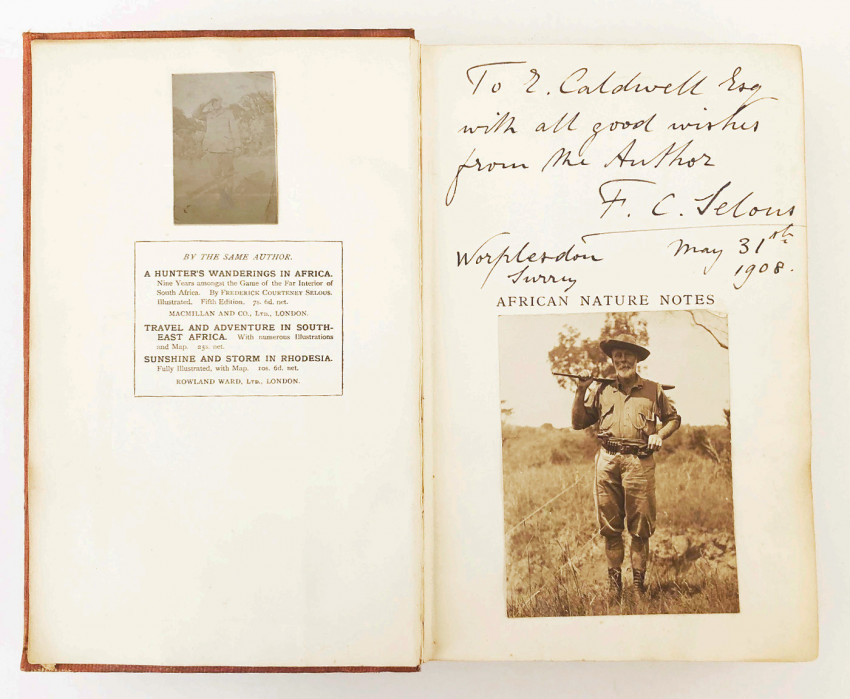 BY THE SAME AUTHOR.
A HUNTER'S WANDERINGS IN AFRICA.
Nine Years amongst the Game of the Far Interior of
South Africa. By FREDERICK COURTENEY SELOUS.
Illustrated. Fifth Edition. 7s. 6d. net.
MACMILLAN AND CO., LTD., LONDON.
TRAVEL AND ADVENTURE IN SOUTH-
EAST AFRICA. With numerous Illustrations
and Map. 25s. net.
SUNSHINE AND STORM IN RHODESIA.
Fully Illustrated, with Map. 10s. 6d. net.
ROWLAND WARD, LTD., LONDON.
To E. Caldwell Esq
with all good wishes
from the Author
F. C. Selous
Worplesdon May 31st
Surrey 1908.
AFRICAN NATURE NOTES